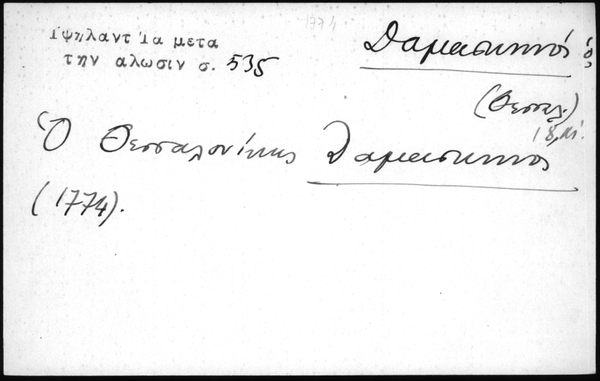 1774
Ὑψηλαντ Ἰα μετα
την αλωσιν σ. 535
Δαμασκηνός ὁ
(Θεσσαλ.)
18 αἰ.
Ὁ Θεσσαλονίκης Δαμασκηνός
(1774).